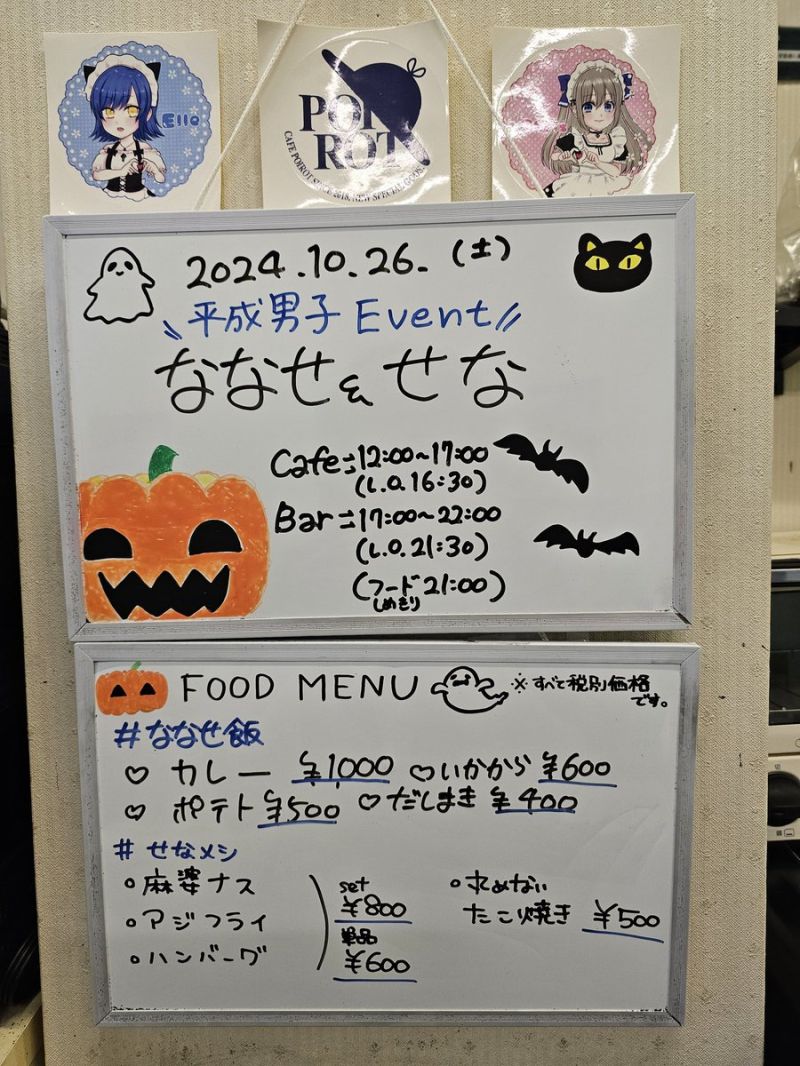 Ello
POI
ROT
CAFE POIROT SINCE 2018. NEW SPECIAL GOODS.
2024.10.26.(土)
\\平成男子 Event//
ななせ&せな
Cafe:12:00~17:00
(L.O.16:30)
Bar:17:00~22:00
(L.O.21:30)
(フード21:00)
しめきり
FOOD MENU ※すべて税別価格
です。
#ななせ飯
♡カレー ¥1000 ♡いかから ¥600
♡ポテト ¥500 ♡だしまき ¥400
#せなメシ
○麻婆ナス
○アジフライ
○ハンバーグ
set
¥800
単品
¥600
○求めない
たこ焼き ¥500